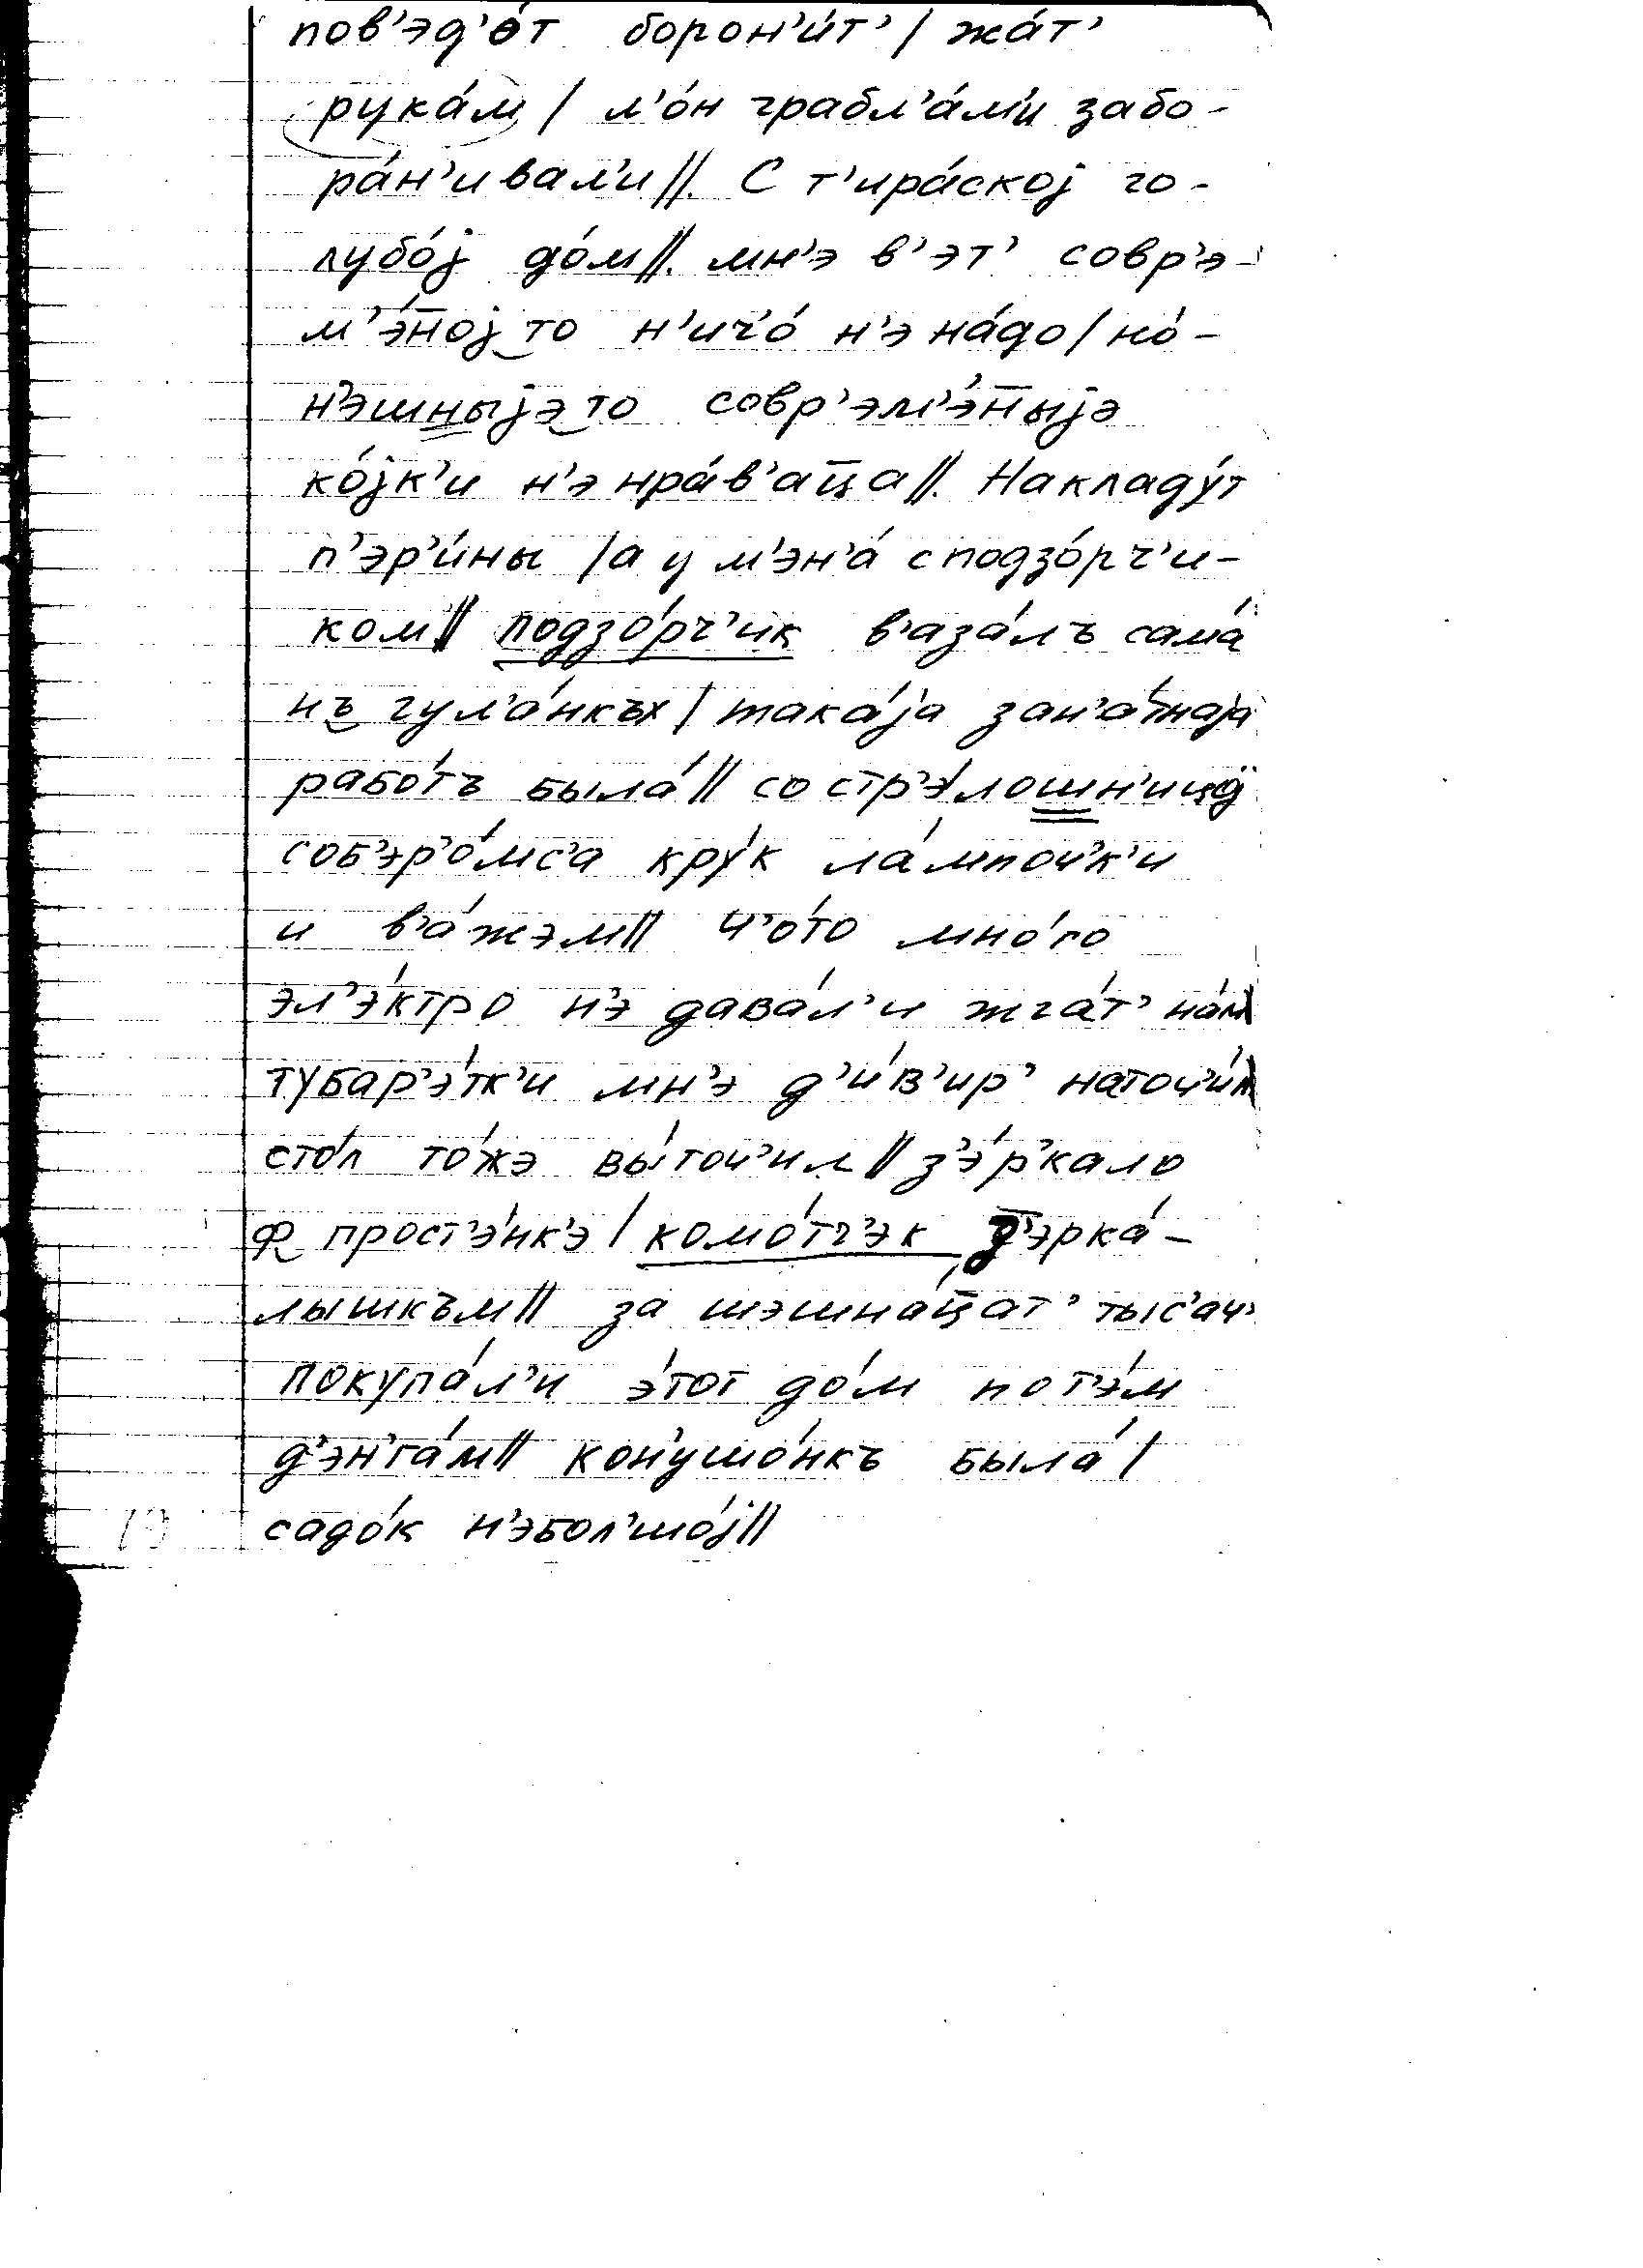 пов’эд’о́т борон’и́т’ / жа́т’
рука́м / л’о́н грабл’а́м’и забо-
ра́н’ивал’и //. С т’ира́скоj го-
лубо́j до́м //. мн’э в’эт’ совр’э-
м’э́н̅оj то н’ич’о́ н’э на́до / но́-
н’эшныjэ то совр’эм’э́н̅ыjэ
ко́jк’и н’э нра́в’ац̅а //. Накладу́т
п’эр’и́ны / а у м’эн’а́ с подзо́рч’и-
ком // подзо́рч’ик в’аза́лъ сама́
нъ гул’а́нкъх / така́jа зан’а́тнаjа
рабо́тъ была́ // со стр’э́лошн’ицо́j
соб’эр’о́мс’а кру́к ла́мпоч’к’и
и в’а́жэм // ч’о́то мно́го
эл’э́ктро н’э дава́л’и жга́т’ на́м
тубар’э́тк’и мн’э д’и́в’ир’ наточ’и́л
сто́л то́жэ вы́точ’ил // з’э́р’кало
ф прост’э́нк’э / комо́тч’эк з’эрка́-
лышкъм // за шэшна́ц̅ат’ тыс’ач’
покупа́л’и э́тот до́м по т’э́м
д’эн’га́м // кон’ушо́нкъ была́ /
садо́к н’эбол’шо́j //